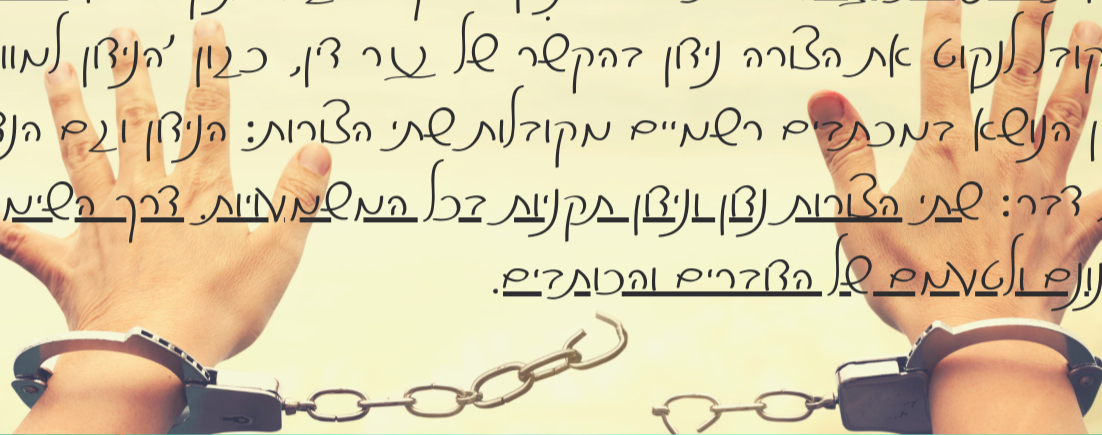 קובל לנקוט את הצורה נידון בהקשר של גזר דין, כגון 'הנידון למוו
הנושא במכתבים רשמיים מקובלות שתי הצורות: הנידון וגם הנד
דבר: שתי הצורות נדון ונידון תקניות בכל המשמעויות. דרך השימ
ולטעמם של הדוברים והכותבים.